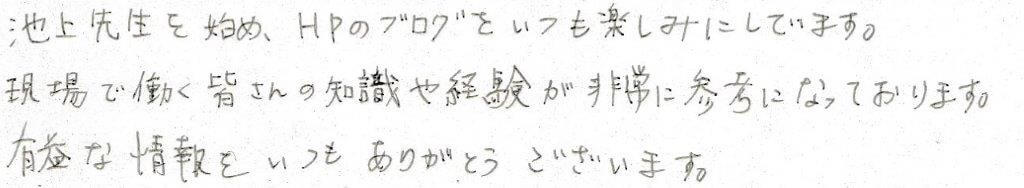 池上先生を始め、HPのブログをいつも楽しみにしています。
現場で働く皆さんの知識や経験が非常に参考になっております。
有益な情報をいつもありがとうございます。